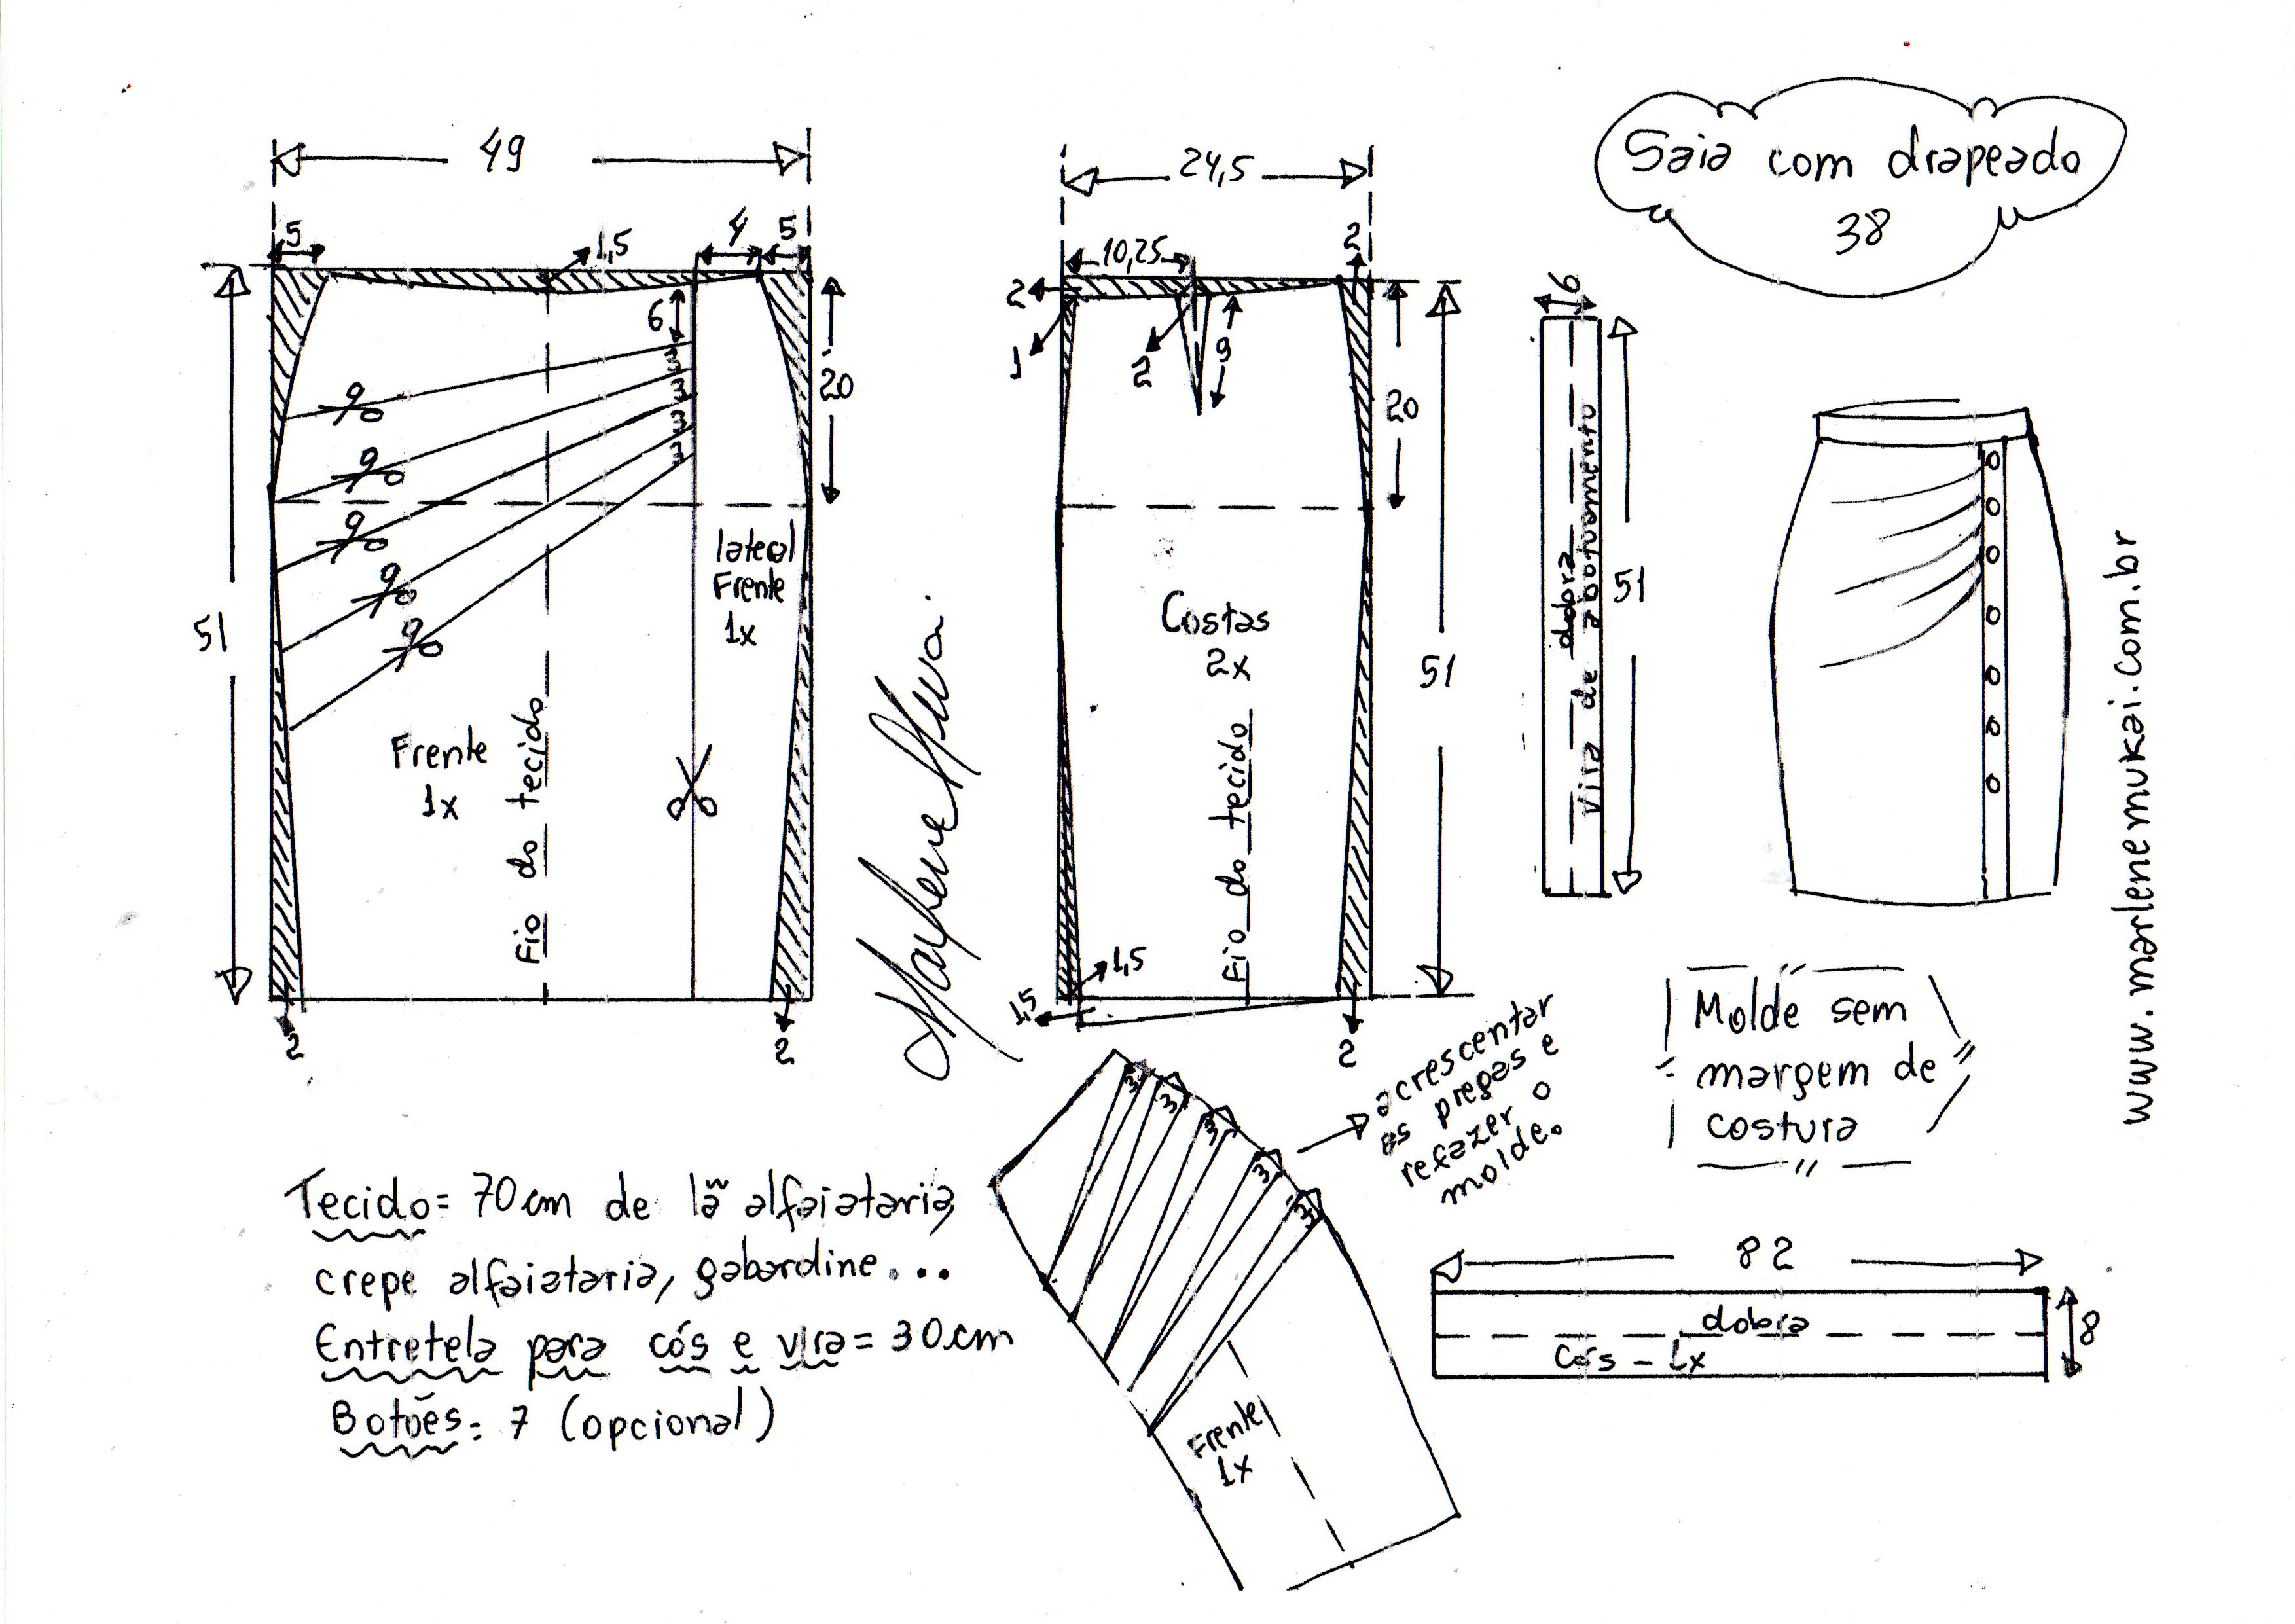 Saia com drapeado
38
49
5
1,5
4
5
6
3
3
3
3
3
20
51
lateral
Frente
1x
Frente
1x
Fio do tecido
2
2
24,5
10,25
2
2
1
2
9
20
Costas
2x
51
Fio do tecido
1,5
1,5
2
6
dobra
vira de abotoamento
51
www.marlenemukai.com.br
Molde sem
margem de
costura
3
3
3
3
3
acrescentar
as pregas e
refazer o
molde.
Frente
1x
82
dobra
Cós - 1x
8
Tecido = 70cm de lã alfaiataria,
crepe alfaiataria, gabardine...
Entretela para cós e vira = 30cm
Botões = 7 (opcional)